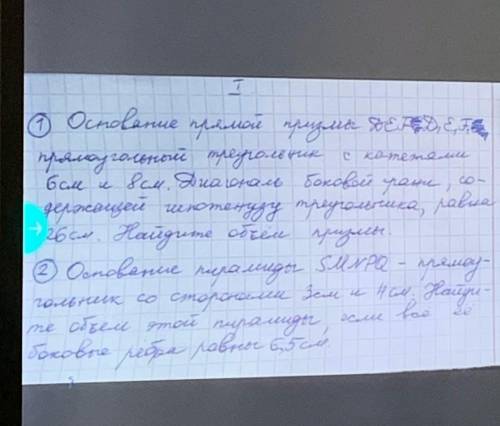 I
① Основание прямой призмы DEFD₁E₁F₁
прямоугольный треугольник с катетами
6см и 8см. Диагональ боковой грани, со-
держащей гипотенузу треугольника, равна
26см. Найдите объём призмы.
② Основание пирамиды SMNPQ - прямоу-
гольник со сторонами 3см и 4см. Найди-
те объем этой пирамиды, если все её
боковые ребра равны 6,5см